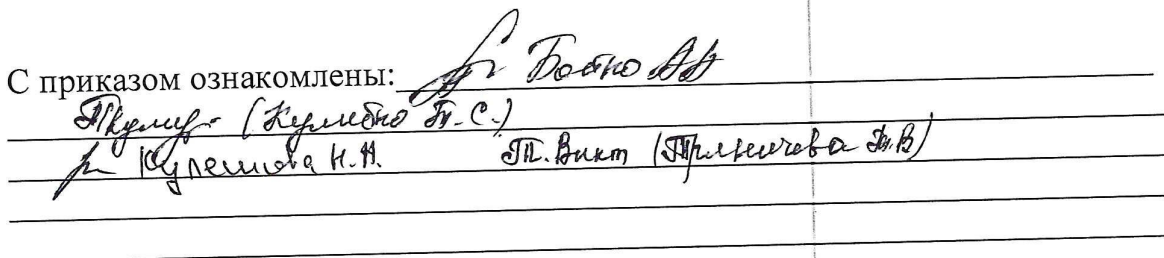 С приказом ознакомлены: Бойко АА
(Кулибко Т.С.)
Кулешова Н.Н. Т. Викт (Тряничева Т.В)